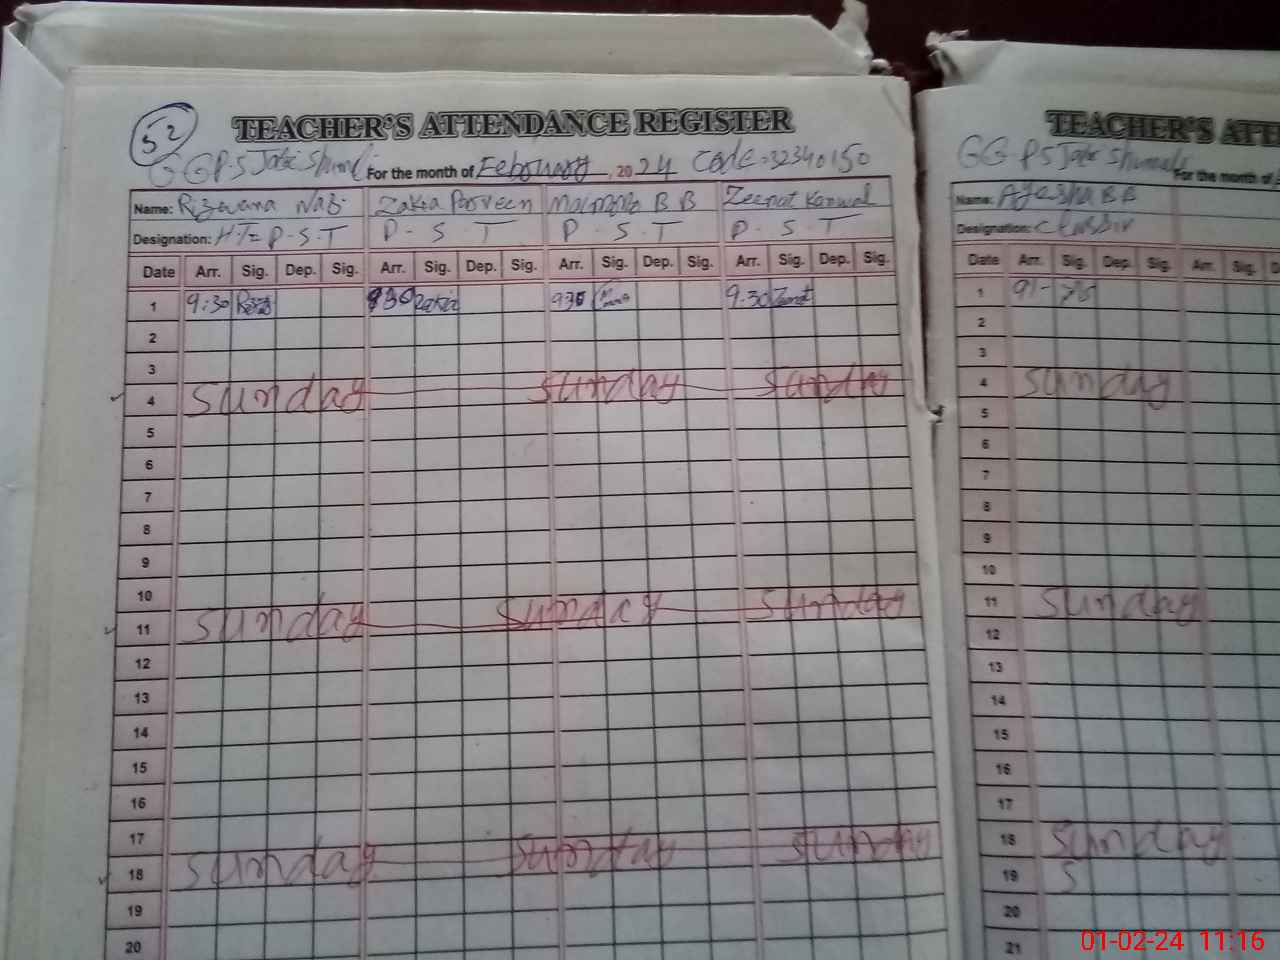 52
TEACHER'S ATTENDANCE REGISTER
GGPS Jabi Shumali For the month of February, 2024 Code=32340150
Name: Rizwana Naz Zakia Parveen Maimona B B Zeenat Kanwal
Designation: HT= P-S-T P-S-T P-S-T P-S-T
Date Arr. Sig. Dep. Sig. Arr. Sig. Dep. Sig. Arr. Sig. Dep. Sig. Arr. Sig. Dep. Sig.
1 9:30 930 Zakia 930 9.30
2
3
4 Sunday Sunday Sunday
5
6
7
8
9
10
11 Sunday Sunday Sunday
12
13
14
15
16
17
18 Sunday Sunday Sunday
19
20
TEACHER'S ATTE
GGPS Jabi Shumali For the month of
Name: Ayesha BB
Designation:
Date Arr. Sig. Dep. Sig. Arr. Sig. D
1
2
3
4 Sunday
5
6
7
8
9
10
11 Sunday
12
13
14
15
16
17
18 Sunday
19 S
20
21
01-02-24 11:16